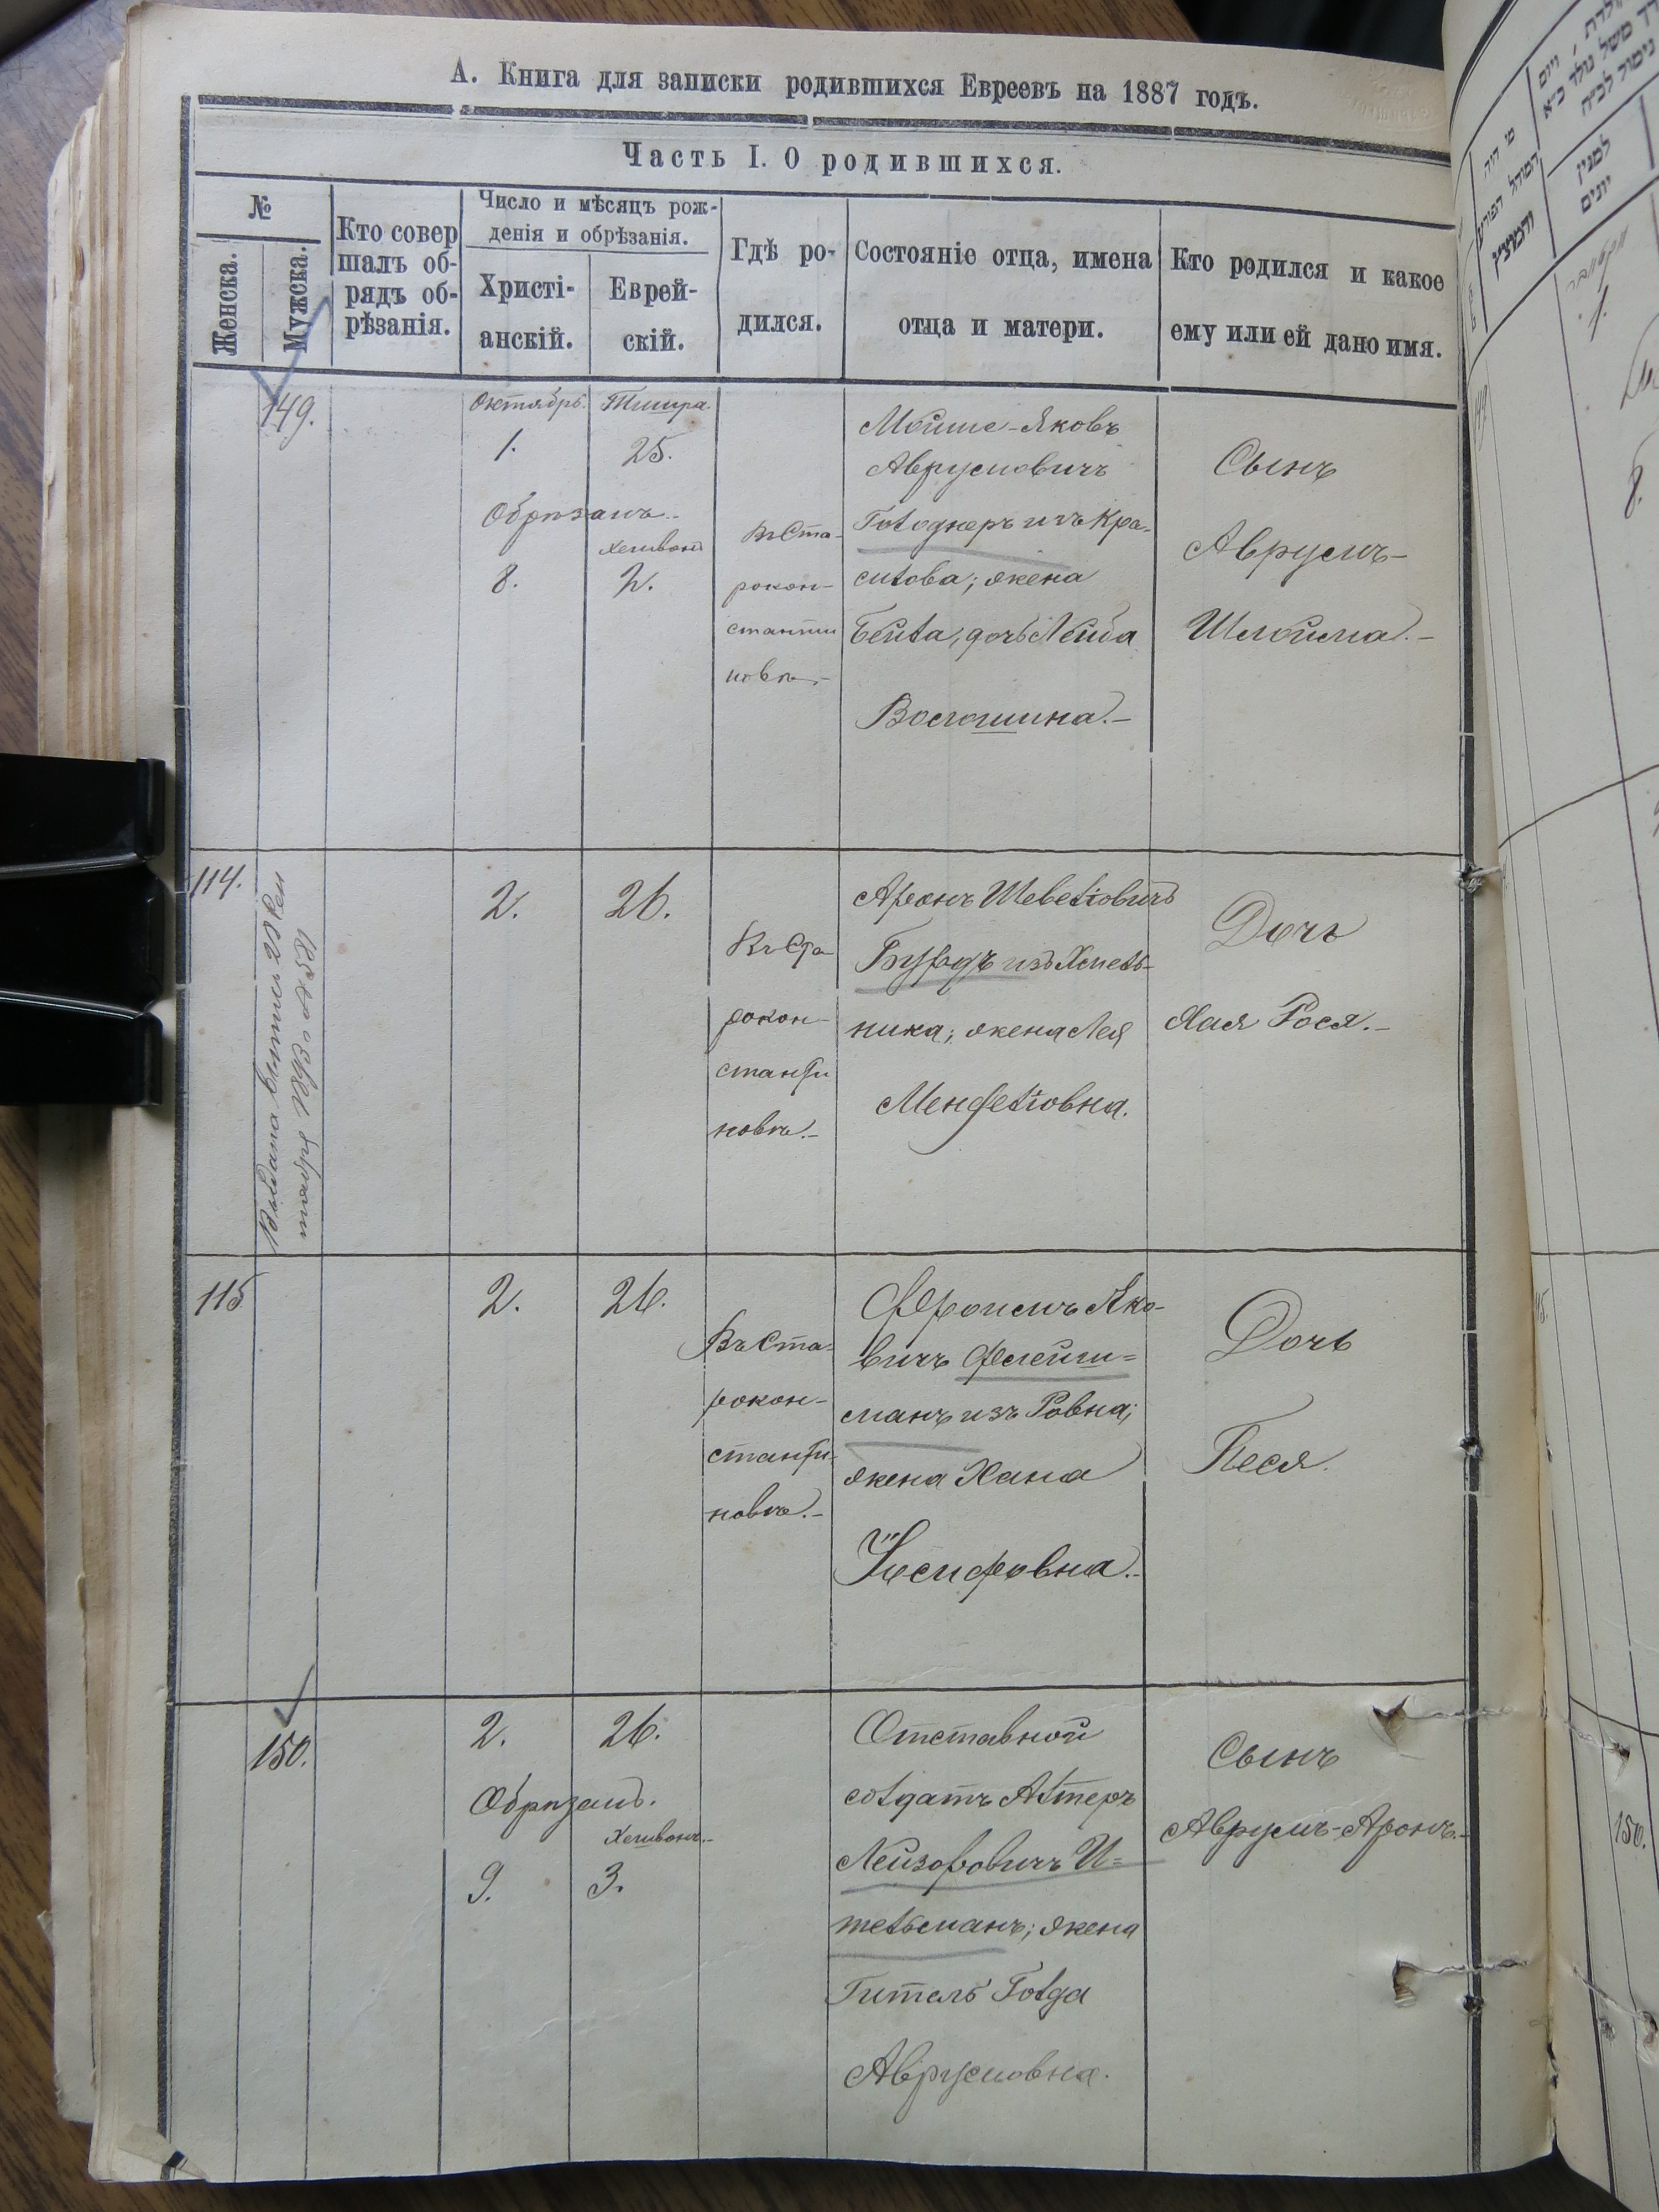 А. Книга для записки родившихся Евреевъ на 1887 годъ.
Часть I. О родившихся.
№
Женска.
Мужска.
Кто совер
шалъ об-
рядъ об-
рѣзанія.
Число и мѣсяцъ рож-
денія и обрѣзанія.
Христі-
анскій.
Еврей-
скій.
Гдѣ ро-
дился.
Состояніе отца, имена
отца и матери.
Кто родился и какое
ему или ей дано имя.
149.
Октябрь.
1.
Обрѣзанъ.
8.
Тишра.
25.
Хешвонъ
2.
Въ Ста-
рокон-
станти
новѣ.-
Мойше-Яковъ
Аврумовичъ
Голоднеръ изъ Кра-
силова; жена
Бейла, дочь Лейба
Волошина.-
Сынъ
Аврумъ-
Шлойма.-
114.
Выдана выпись 25 Фев
1893 г
2.
26.
Въ Ста
рокон-
станти
новѣ.-
Аронъ Шевеліовичъ
Бурдъ изъ Хмель-
ника; жена Лея
Менделіовна.
Дочь
Хая Рося.-
115
2.
26.
Въ Ста-
рокон-
станти-
новѣ.-
Фроимъ Яко-
вичъ Флейш=
манъ изъ Ровна;
жена Хана
Іосифовна.-
Дочь
Песя.
150.
2.
Обрѣзанъ.
9.
26.
Хешвонъ.-
3.
Отставной
солдатъ Алтеръ
Лейзоровичъ И=
тельманъ; жена
Гитель Голда
Аврумовна.
Сынъ
Аврумъ-Аронъ.-
150.